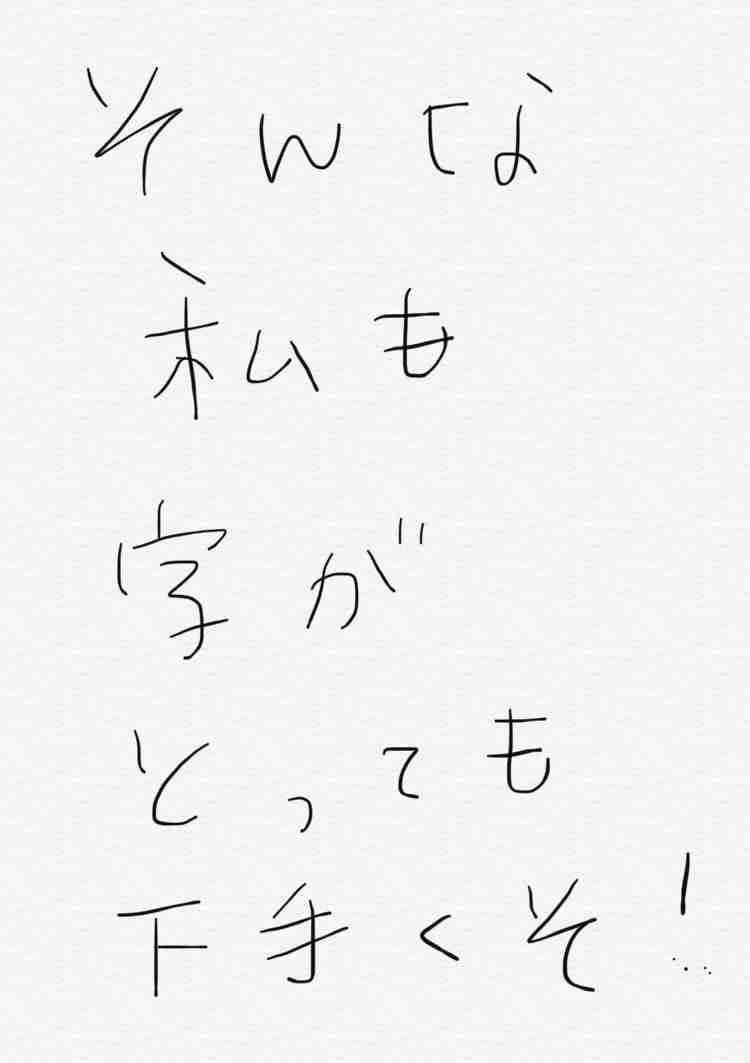 そんな
私も
字が
とっても
下手くそ!